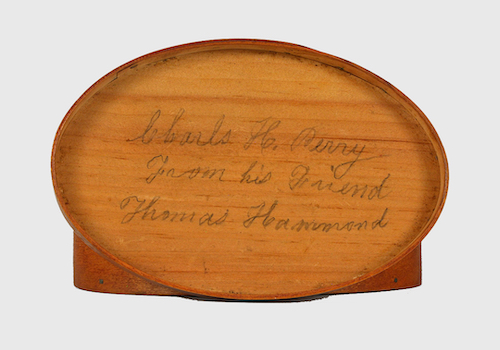 Charls H. Perry
From his Friend
Thomas Hammond